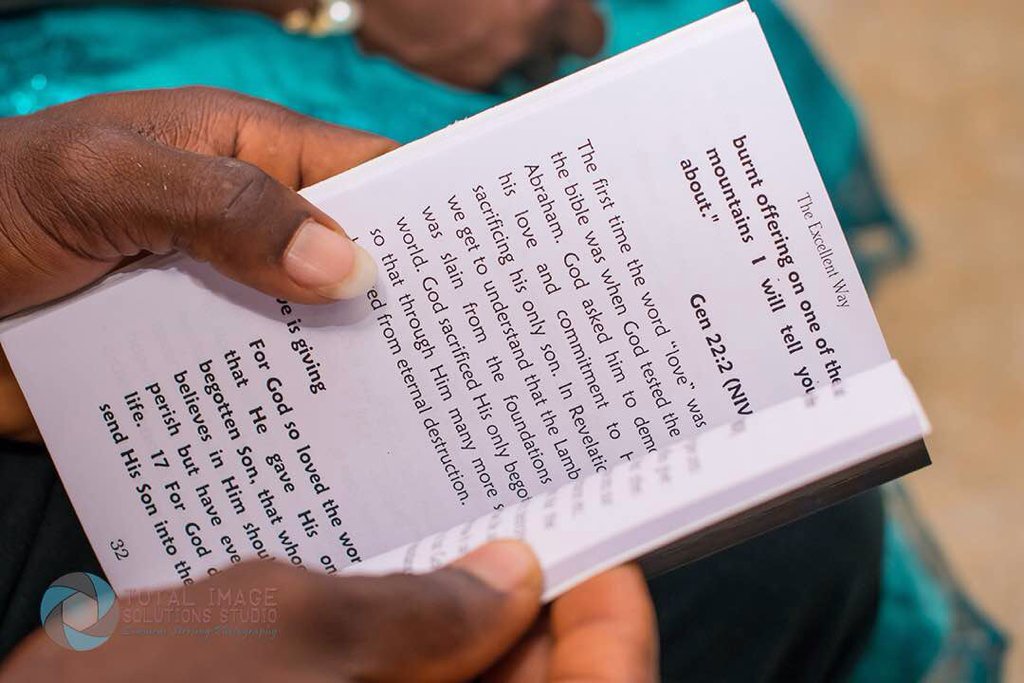 The Excellent Way
burnt offering on one of the
mountains I will tell you
about."
Gen 22:2 (NIV
The first time the word "love" was
the bible was when God tested the
Abraham. God asked him to
his love and commitment to
sacrificing his only son. In
we get to understand that the Lamb
was slain from the foundations
world. God sacrificed His only
so that through Him many more
from eternal destruction.
is giving
For God so loved the
that He gave His
begotten Son, that
believes in Him
perish but have
life. 17 For God
send His Son into the
32
TOTAL IMAGE
SOLUTIONS STUDIO